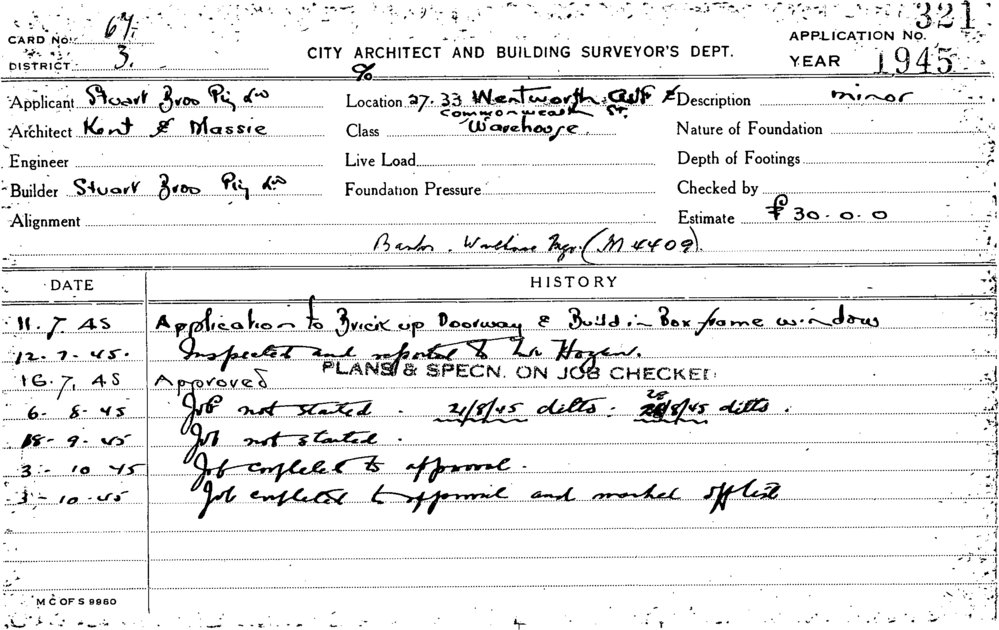 CARD No. 67.
DISTRICT 3.
CITY ARCHITECT AND BUILDING SURVEYOR'S DEPT.
321
APPLICATION No.
YEAR 1945
%
Applicant Stuart Bros Pty Ltd
Location 27. 33 Wentworth Ave &
Commonwealth St.
Description minor
Architect Kent & Massie
Class Warehouse
Nature of Foundation
Engineer
Live Load
Depth of Footings
Builder Stuart Bros Pty Ltd
Foundation Pressure
Checked by
Alignment
Estimate £ 30.0.0
(M 4409).
DATE HISTORY
11.7.45 Application to Brick up Doorway & Build in Box frame windows
12.7.45. Inspected and reported to Mr Hogan.
PLANS & SPECN. ON JOB CHECKED
16.7.45 Approved
6-8-45 Job not started. 21/8/45 ditto. 28/8/45 ditto.
18-9-45 Job not started.
3-10 45 Job completed to approval.
3-10-45 Job completed to approval and marked off list
M C OF S 9960